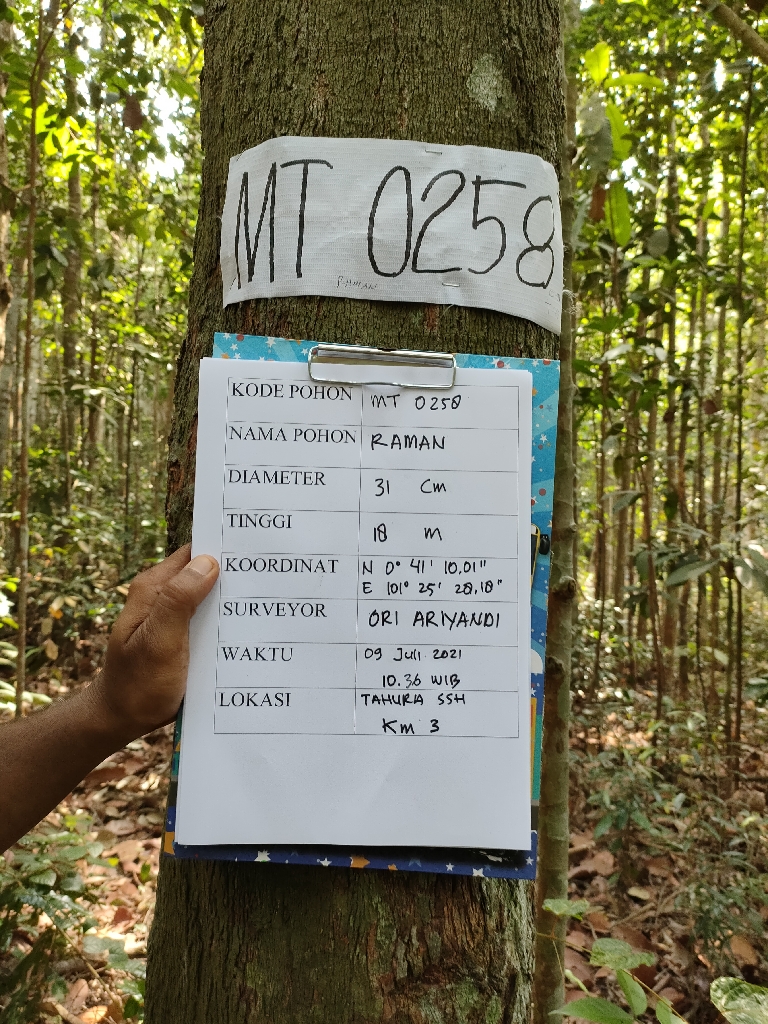 MT 0258
RAMAN
KODE POHON MT 0258
NAMA POHON RAMAN
DIAMETER 31 Cm
TINGGI 18 m
KOORDINAT N 0° 41' 10,01"
E 101° 25' 28,18"
SURVEYOR ORI ARIYANDI
WAKTU 09 Juli 2021
10.36 WIB
LOKASI TAHURA SSH
Km 3